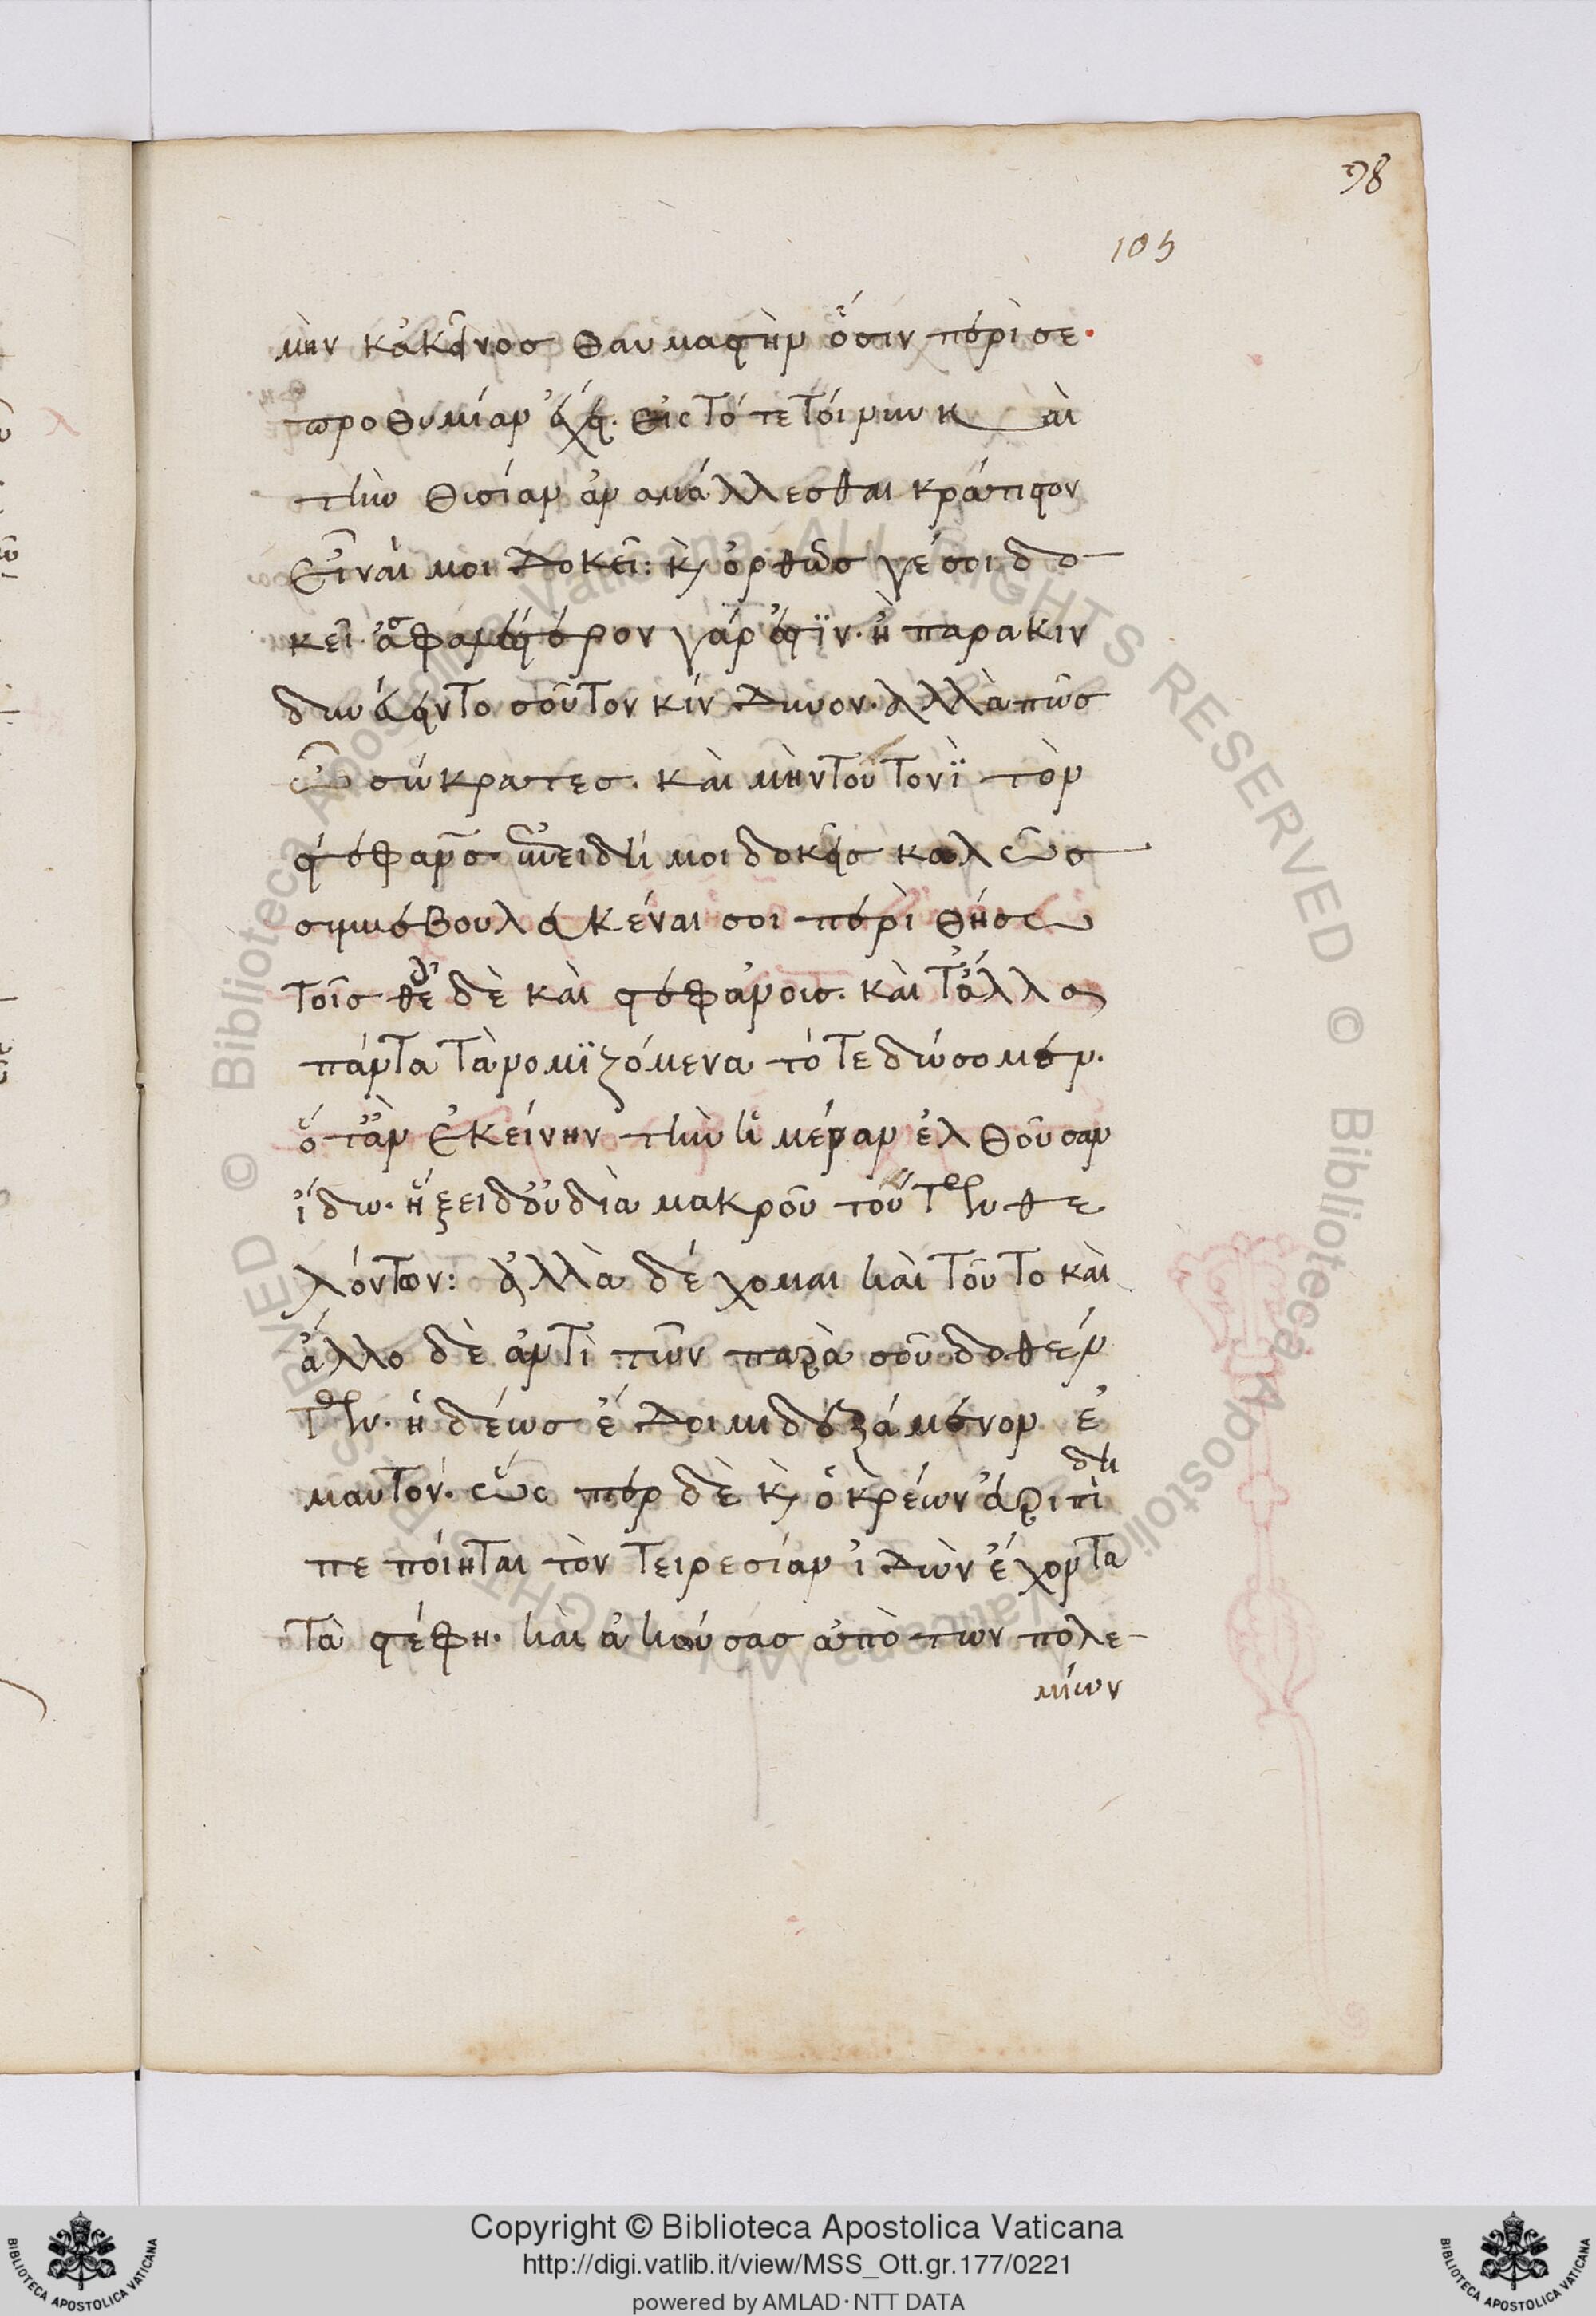 98
105
μὴν κἀκεῖνος θαυμαστὴν ὅσιν περὶ σε·
προθυμίαν ἔχει. εἰς τότε τοίνυν καὶ
τὴν θυσίαν ἀναβάλλεσθαι κράτιστον
εἶναί μοι δοκεῖ: κ(αὶ) ὀρθῶς γέ σοι δο
κεῖ. ἀσφαλέστερον γάρ ἐστϊν. ἢ παρακιν
δυνεύειν τοσοῦτον κίνδυνον. ἀλλὰ πῶς
ὦ σώκρατες. καὶ μὴν τουτονϊ τὸν
στέφανον. ἐπειδή μοι δοκεῖς καλῶς
συμβεβουλευκέναι σοι περὶ θήσω
τοῖς θε(οῖς) δὲ καὶ στεφάνοις. καὶ τἄλλα
πάντα τὰ νομϊζόμενα τότε δώσομεν.
ὅταν ἐκείνην τὴν ἡμέραν ἐλθοῦσαν
ἴδω. ἥξει δ οὐ διὰ μακροῦ τούτων θε
λόντων: ἀλλὰ δέχομαι καὶ τοῦτο καὶ
ἄλλο δὲ ἀντὶ τῶν παρὰ σοῦ δοθέν
των. ἡδέως ἔδοιμι δεξάμενον ἐ
μαυτόν. ὥσπερ δὲ κ(αὶ) ὁ κρέων εὐριπίδη
πεποίηται τὸν τειρεσίαν ἰδὼν ἔχοντα
τὰ στέφη. καὶ ἀκούσας ἀπὸ των πολε
μίων
Copyright © Biblioteca Apostolica Vaticana
http://digi.vatlib.it/view/MSS_Ott.gr.177/0221
powered by AMLAD·NTT DATA